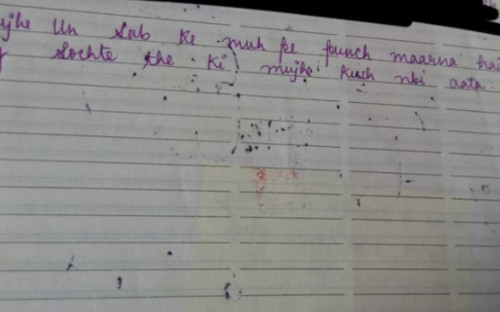 ujhe Un Sab Ke muh pe punch maarna hai
Sochte the ki mujhe kuch nhi aata.